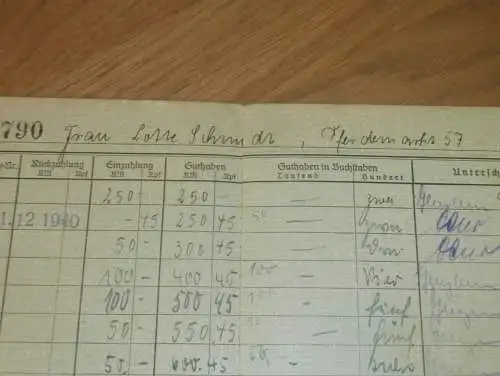 790 Frau Lotte Schmidt, Pferdemarkt 57
Nr. Rückzahlung Einzahlung Guthaben Guthaben in Buchstaben Untersch
RM Rpf RM Rpf RM Rpf Tausend Hundert
250 - 250 - — zwei
1.12.1940 - 45 250 45 50 — zwei
50 - 300 45 — drei
100 - 400 45 100 — vier
100 - 500 45 100 — fünf
50 - 550 45 50 — fünf
50 - 600 45 50 —